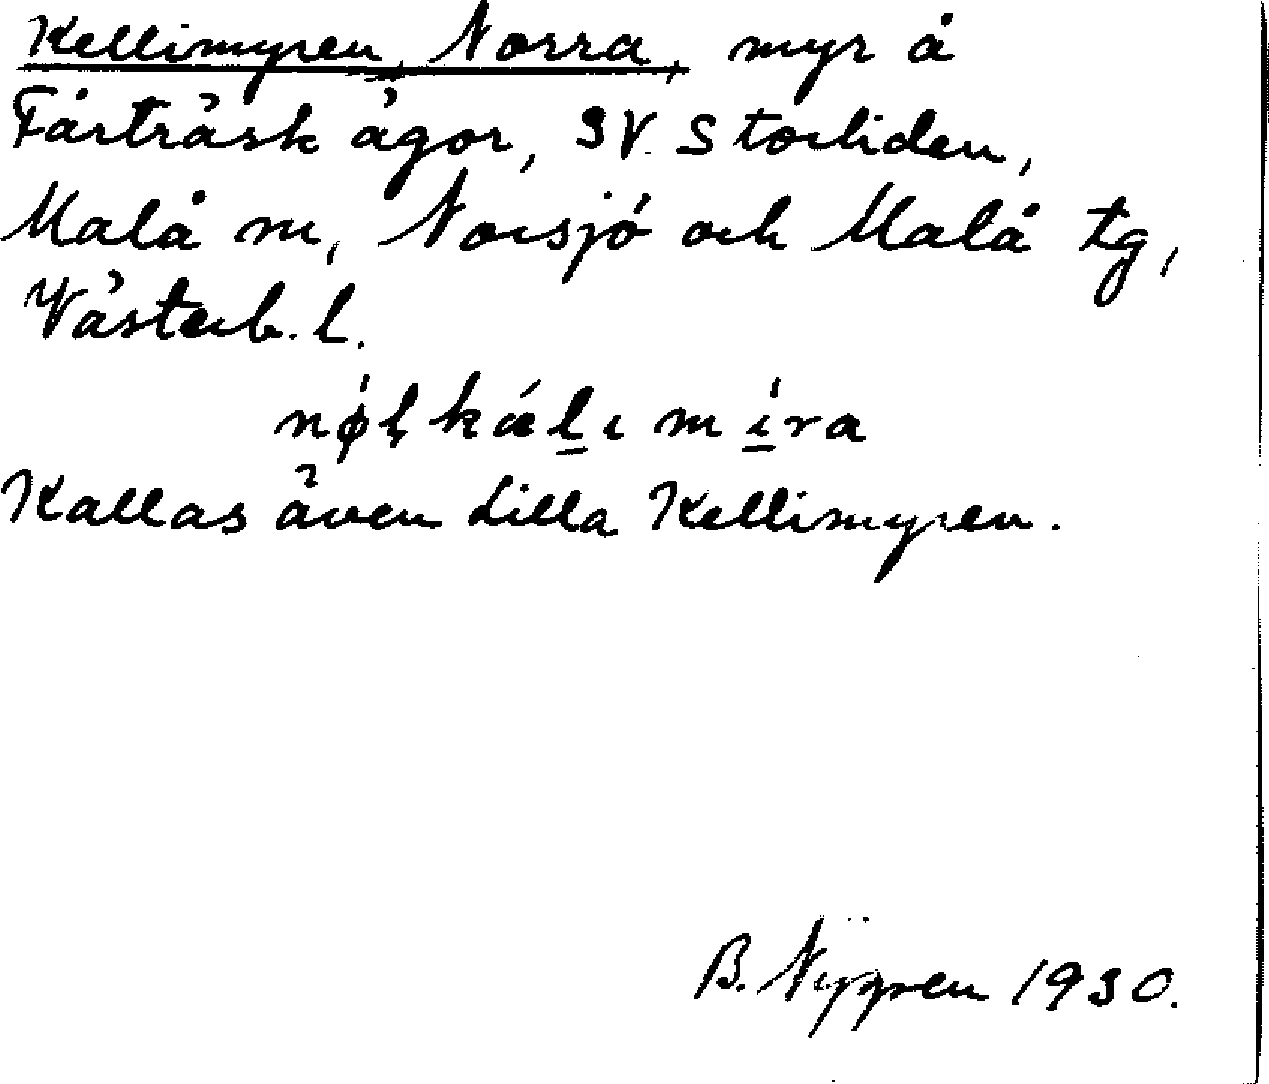 Kellimyren, Norra, myr å
Fårträsk ägor, SV. Storliden,
Malå sn, Norsjö och Malå tg,
Västerb. l.
nǿļkǽlı míra
Kallas även Lilla Kellimyren.
B. Nygren 1930.